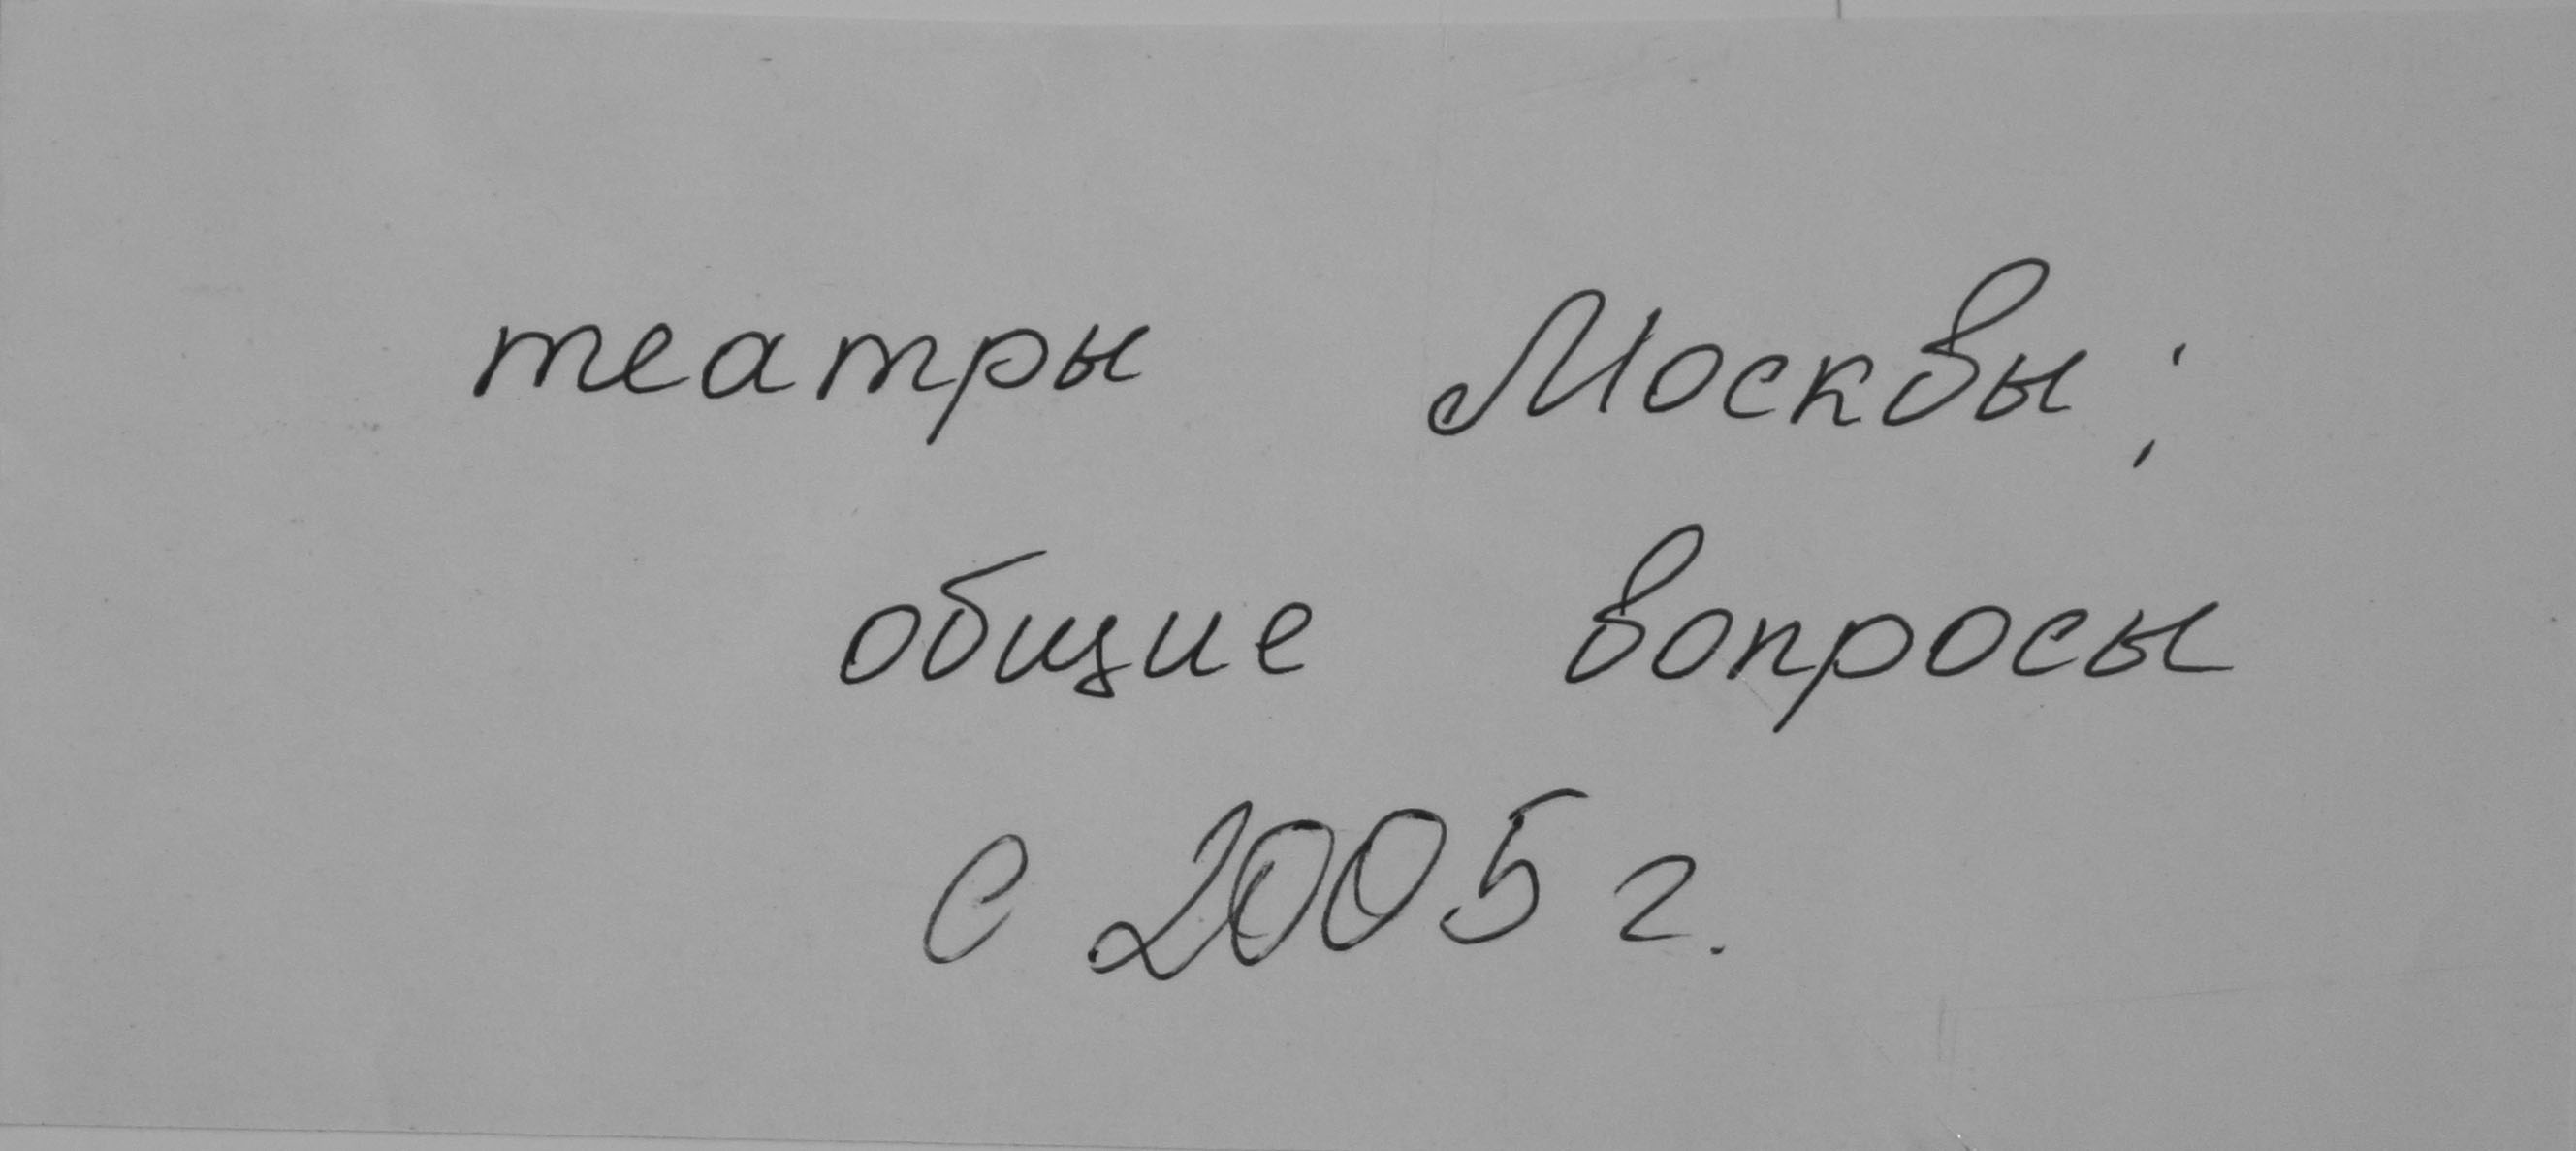 театры Москвы;
общие вопросы
с 2005 г.